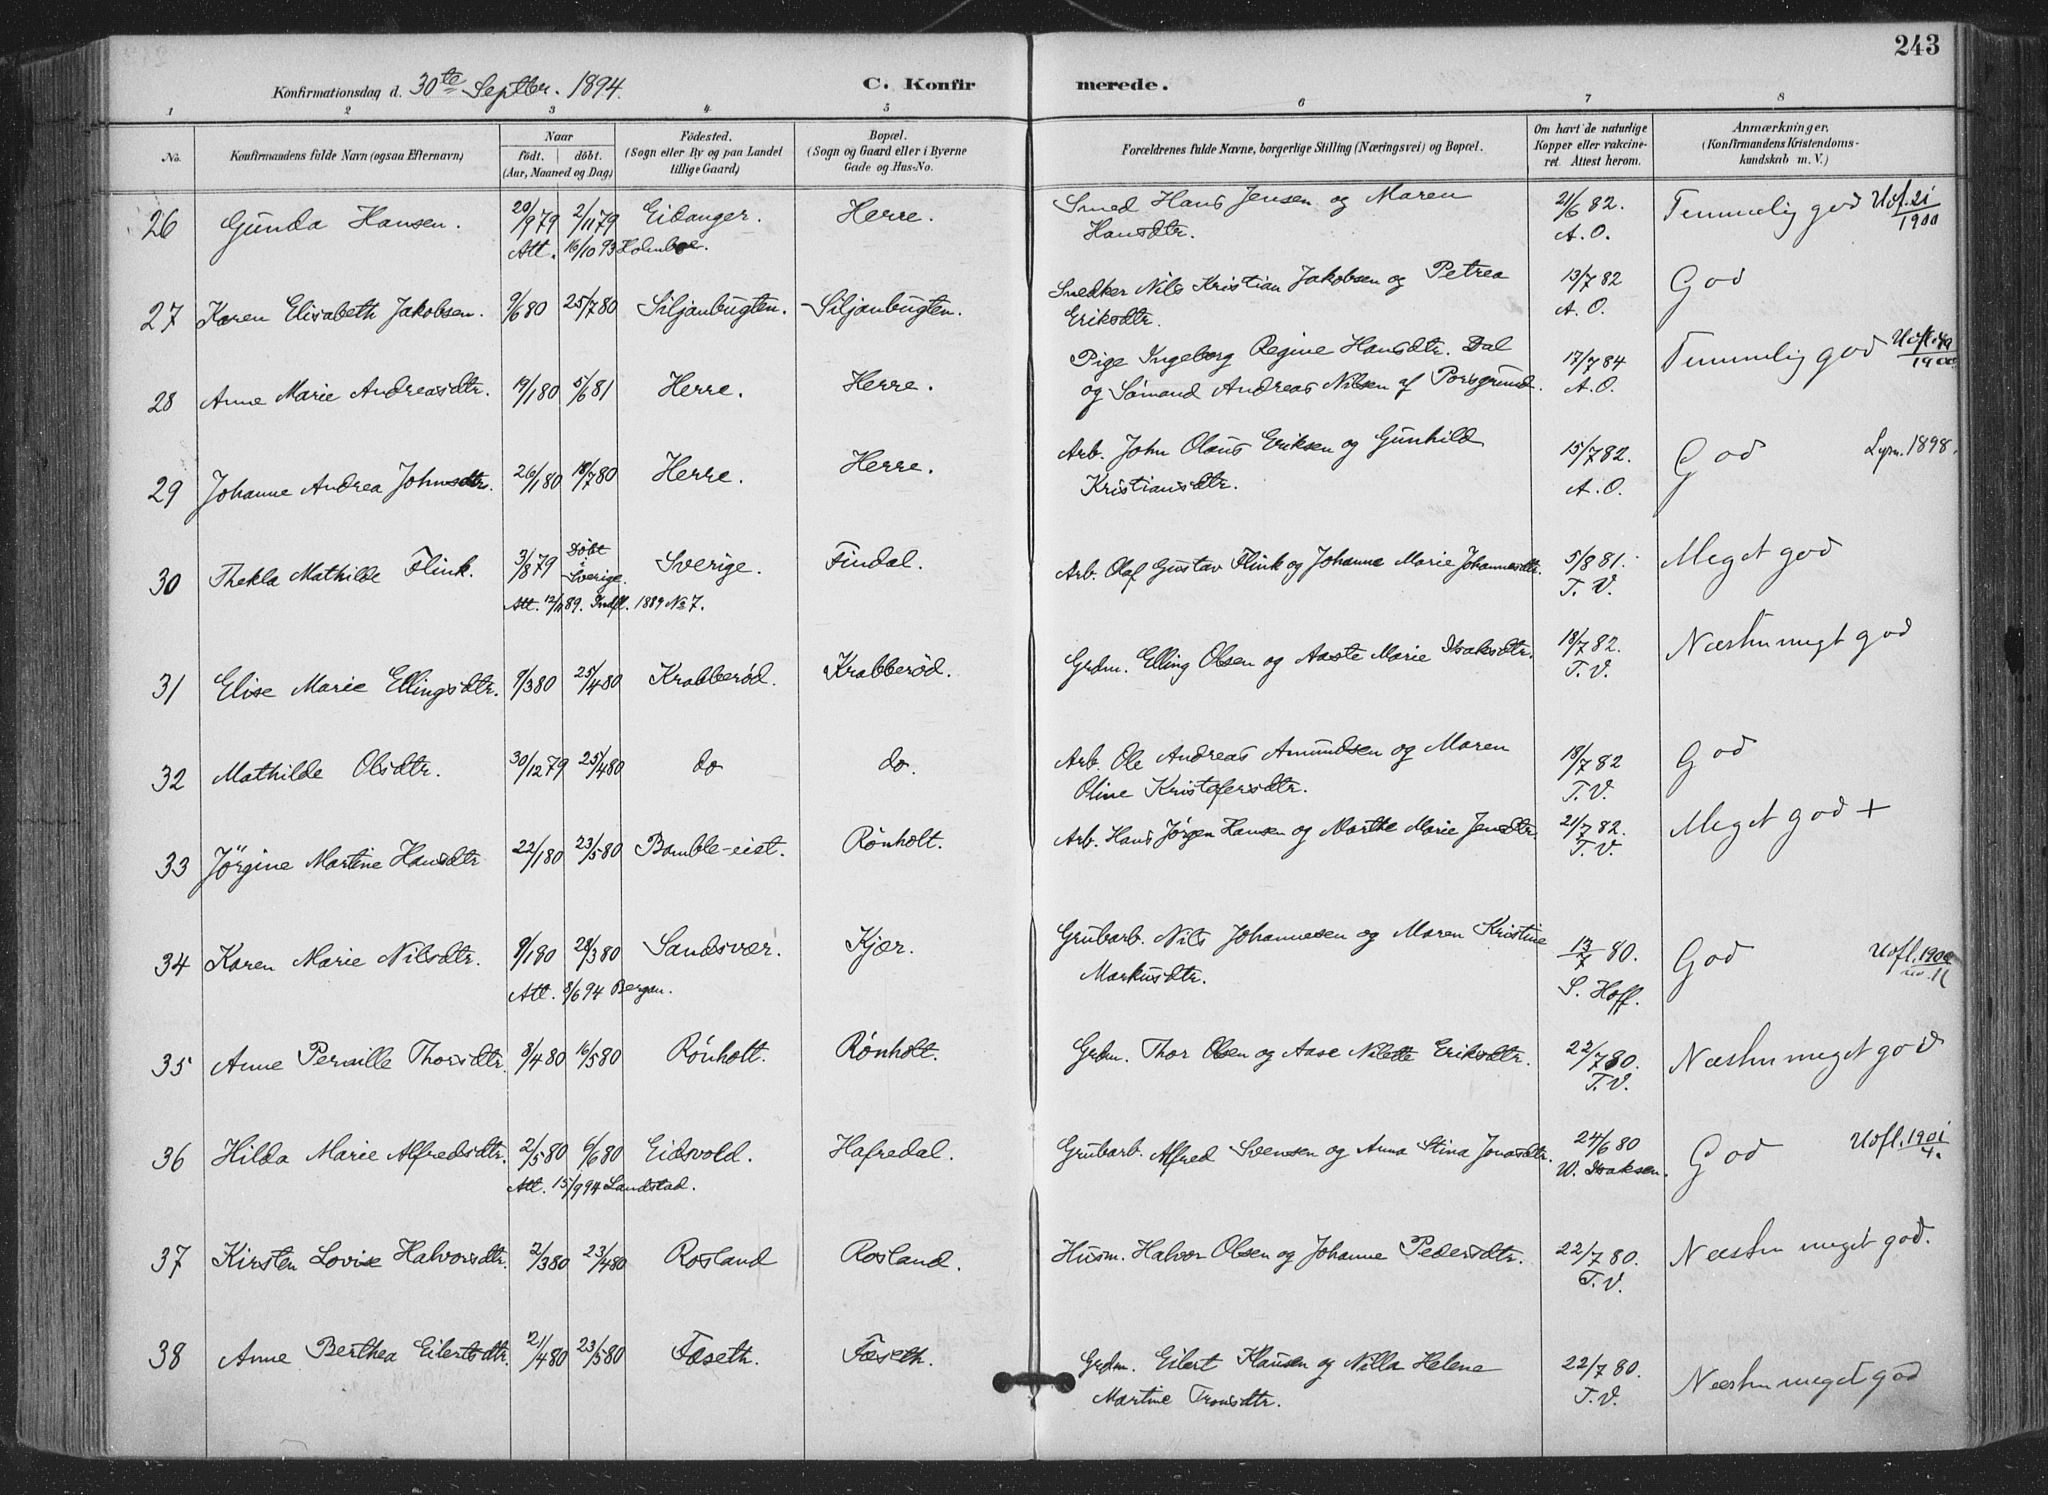 243
Konfirmationsdag d. 30te Septbr. 1894.
C. Konfirmerede.
1 2 3 4 5 6 7 8
No.
Konfirmandens fulde Navn (ogsaa Efternavn)
Naar
födt. döbt.
(Aar, Maaned og Dag)
Födested.
(Sogn eller By og paa Landet
tillige Gaard)
Bopæl.
(Sogn og Gaard eller i Byerne
Gade og Hus-No.
Forældrenes fulde Navne, borgerlige Stilling (Næringsvei) og Bopæl.
Om havt de naturlige
Kopper eller vakcine-
ret. Attest herom.
Anmærkninger.
(Konfirmandens Kristendoms-
kundskab m. V.)
26 Gunda Hansen. 20/9 79 2/11 79 Eidanger. Herre. Smed Hans Jensen og Maren 21/6 82. Temmelig god Udfl. 21/1900
Att. 16/10 93 Holmboe. Hansdtr. A. O.
27 Karen Elisabeth Jakobsen. 9/6 80 25/7 80 Siljanbugten. Siljanbugten. Snedker Nils Kristian Jakobsen og Petrea 13/7 82 God
Eriksdtr. A. O.
28 Anne Marie Andreasdtr. 19/1 80 5/6 81 Herre. Herre. Pige Ingeborg Regine Hansdtr. Dal 17/7 84 Temmelig god
og Sömand Andreas Nilsen af Porsgrund. A. O.
29 Johanne Andrea Johnsdtr. 26/1 80 18/7 80 Herre. Herre. Arb. John Olaus Eriksen og Gunhild 15/7 82. God 1898.
Kristiansdtr. A. O.
30 Thekla Mathilde Flink. 3/8 79 Döbt i Sverige. Sverige. Findal. Arb. Olaf Gustav Flink og Johanne Marie Johannesdtr. 5/8 81. Meget god
Att. 12/11 89. Indfl. 1889 No 7. T. V.
31 Elise Marie Ellingsdtr. 9/3 80 25/4 80 Krabberød. Krabberød. Grdm. Elling Olsen og Aaste Marie Isaksdtr. 18/7 82. Næsten meget god
T. V.
32 Mathilde Olsdtr. 30/12 79 25/4 80 do do. Arb. Ole Andreas Amundsen og Maren 18/7 82 God
Oline Kristofersdtr. T. V.
33 Jörgine Martine Hansdtr 22/1 80 23/5 80 Bamble-eist. Rönholt. Arb. Hans Jörgen Hansen og Marthe Marie Jensdtr. 21/7 82. Meget god +
T. V.
34 Karen Marie Nilsdtr. 9/1 80 28/3 80 Sandsvær. Kjær. Grubarb. Nils Johannesen og Maren Kristine 13/7 80. God Udfl. 1900
Att. 8/6 94 Bergan. Markusdtr. S. Hoff. no. 11
35 Anne Pernille Thorsdtr. 8/4 80 16/5 80 Rönholt. Rönholt. Grdm. Thor Olsen og Aase Nilette Eriksdtr. 22/7 80. Næsten meget god
T. V.
36 Hilda Marie Alfredsdtr. 2/5 80 6/6 80 Eidsvold. Hafredal. Grubarb. Alfred Svensen og Anna Stina Jonasdtr. 24/6 80 God Udfl. 1901/4.
Att. 15/9 94 Landstad. W. Isaksen.
37 Kirsten Lovise Halvorsdtr. 2/3 80 23/4 80 Rosland Rosland. Husm. Halvor Olsen og Johanne Pedersdtr. 22/7 80. Næsten meget god.
T. V.
38 Anne Berthea Eilertsdtr. 21/4 80 23/5 80 Fæseth. Fæseth. Grdm. Eilert Klausen og Nilla Helene 22/7 80. Næsten meget god
Martine Tronsdtr. T. V.